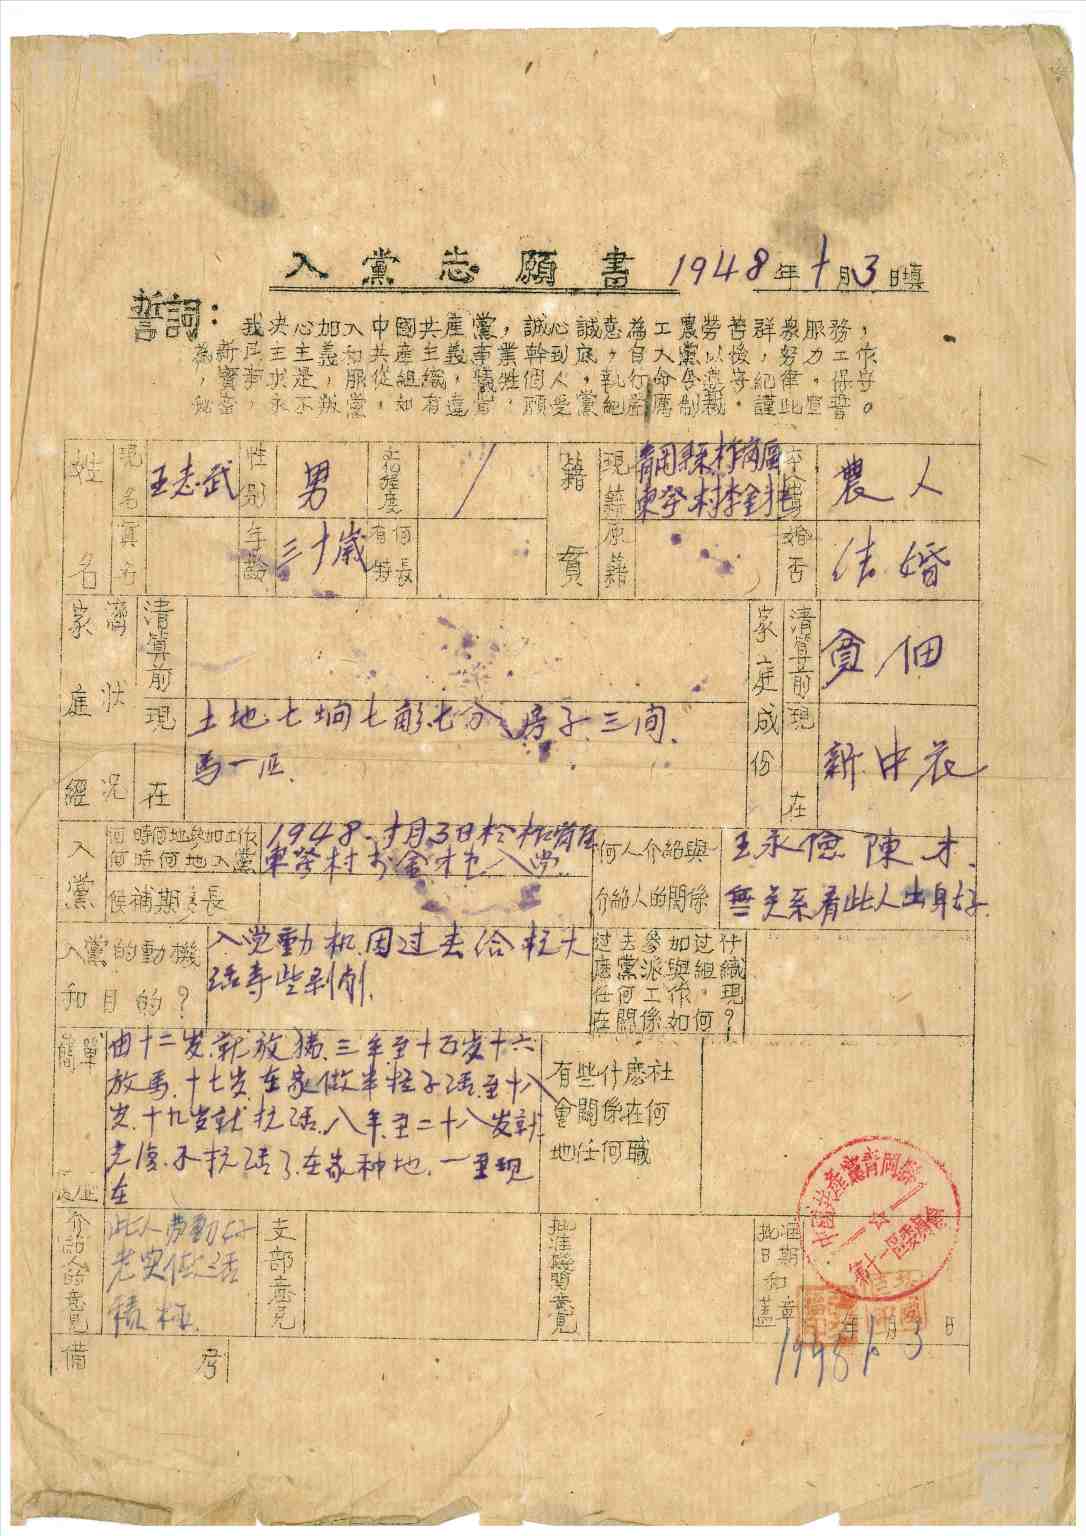 入黨志願書 1948年十月3日填
誓詞：
我決心加入中國共產黨，誠心誠意為工農勞苦群衆服務，
為新民主主義和共產主義事業幹到底，自入黨以後努力工作
，實事求是，服從組織，犧牲個人，執行命令遵守紀律，保守
秘密，永不叛黨，如有違背，願受黨紀嚴厲制裁。謹此宣誓。
姓名
現名
王志武
真名
性別
男
年齡
三十歲
文化程度
/
有何特長
籍貫
現籍
青岡縣柞崗區
東榮村李金圤屯
原籍
農人
婚否
結婚
家庭經濟狀況
清算前
現在
土地七垧七畝七分、房子三间、
馬一匹、
家庭成份
清算前
貧佃
現在
新中农
入黨
何時何地參加工作
何時何地入黨
1948、十月3日於柞崗区
東榮村李金圤屯入党
候補期多長
何人介紹與
介紹人的關係
王永儉 陳才、
無关系看此人出身好
入黨的動機
和目的？
入党動机、因过去给扛大
活受些剥削、
過去參加過什
麽黨派與組織
任何工作，現
在關係如何？
簡單
由十二岁就放猪、三年至十五岁十六
放馬、十七岁在家做半拉子活至十八
岁、十九岁就扛活、八年至二十八岁就
光復、不扛活了、在家种地、一直现
在
有些什麽社
會關係在何
地任何職
介紹人的意見
此人劳動好
老实做活
積極、
支部意見
批准機關意見
批准日期和蓋章
中國共產黨青岡縣
第十一區委員會
年 月 日
備考